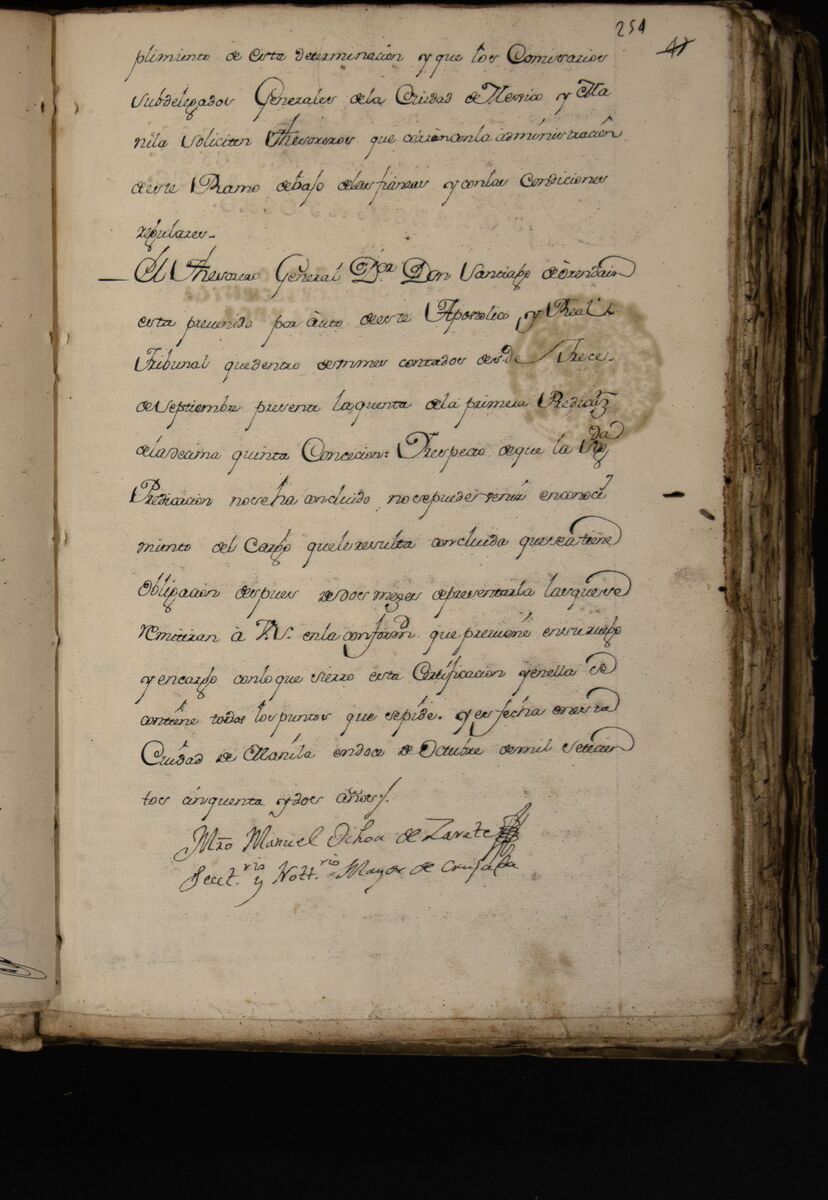 254
41
plimiento de esta determinacion y que los Comisarios
Subdelegados Generales dela Ciudad de Mexico y Ma
nila Soliciten Thesoreros que corran conla administracion
deeste Ramo debajo delas fianzas y conlas Condiciones
regulares.
El Thesorero General Dor. Don Santiago de orendain
esta prevenido por auto deeste Apostolico y Real
Tribunal que dentro de un mes contados desde Trece
de Septiembre presente la quenta dela primera Predicaz.
dela decima quinta Concecion: Y respecto deque la Sigda
Predicacion nose ha concluido, nosepuede venir en conoci
miento del Cargo que le resulta concluida que sea tiene
obligacion despues de dos mezes depresentarla lasquese
remitiran à V.S. enla conformd. que previene en su ruego
y encargo conlo que sierro esta Certificacion yenella se
contiene todos los puntos que sepide. y es fecha en esta
Ciudad de Manila endoce de Octubre demil setecien
tos cinquenta y dos años/.
Mro Manuel Ochoa de Zarate
Secret.rio y Nott.rio Mayor de Cruzada